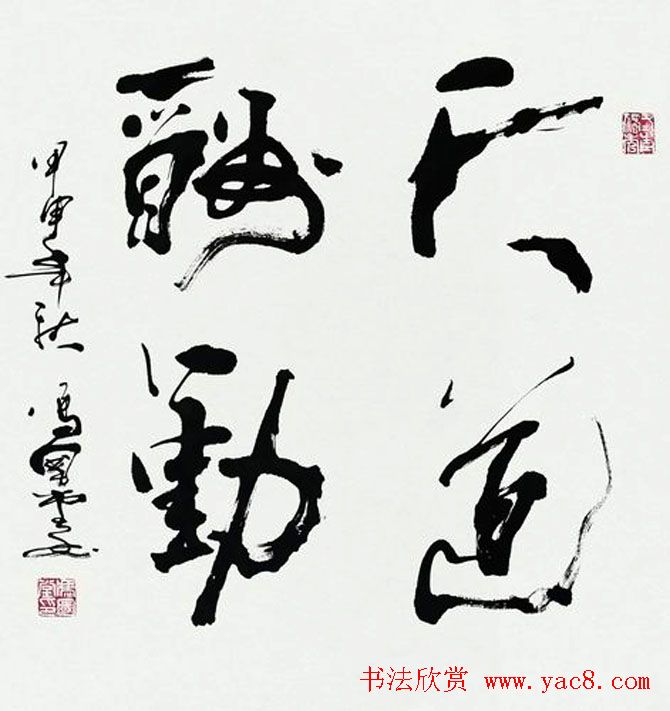 天道
酬勤
甲申年秋 馮國
书法欣赏 www.yac8.com